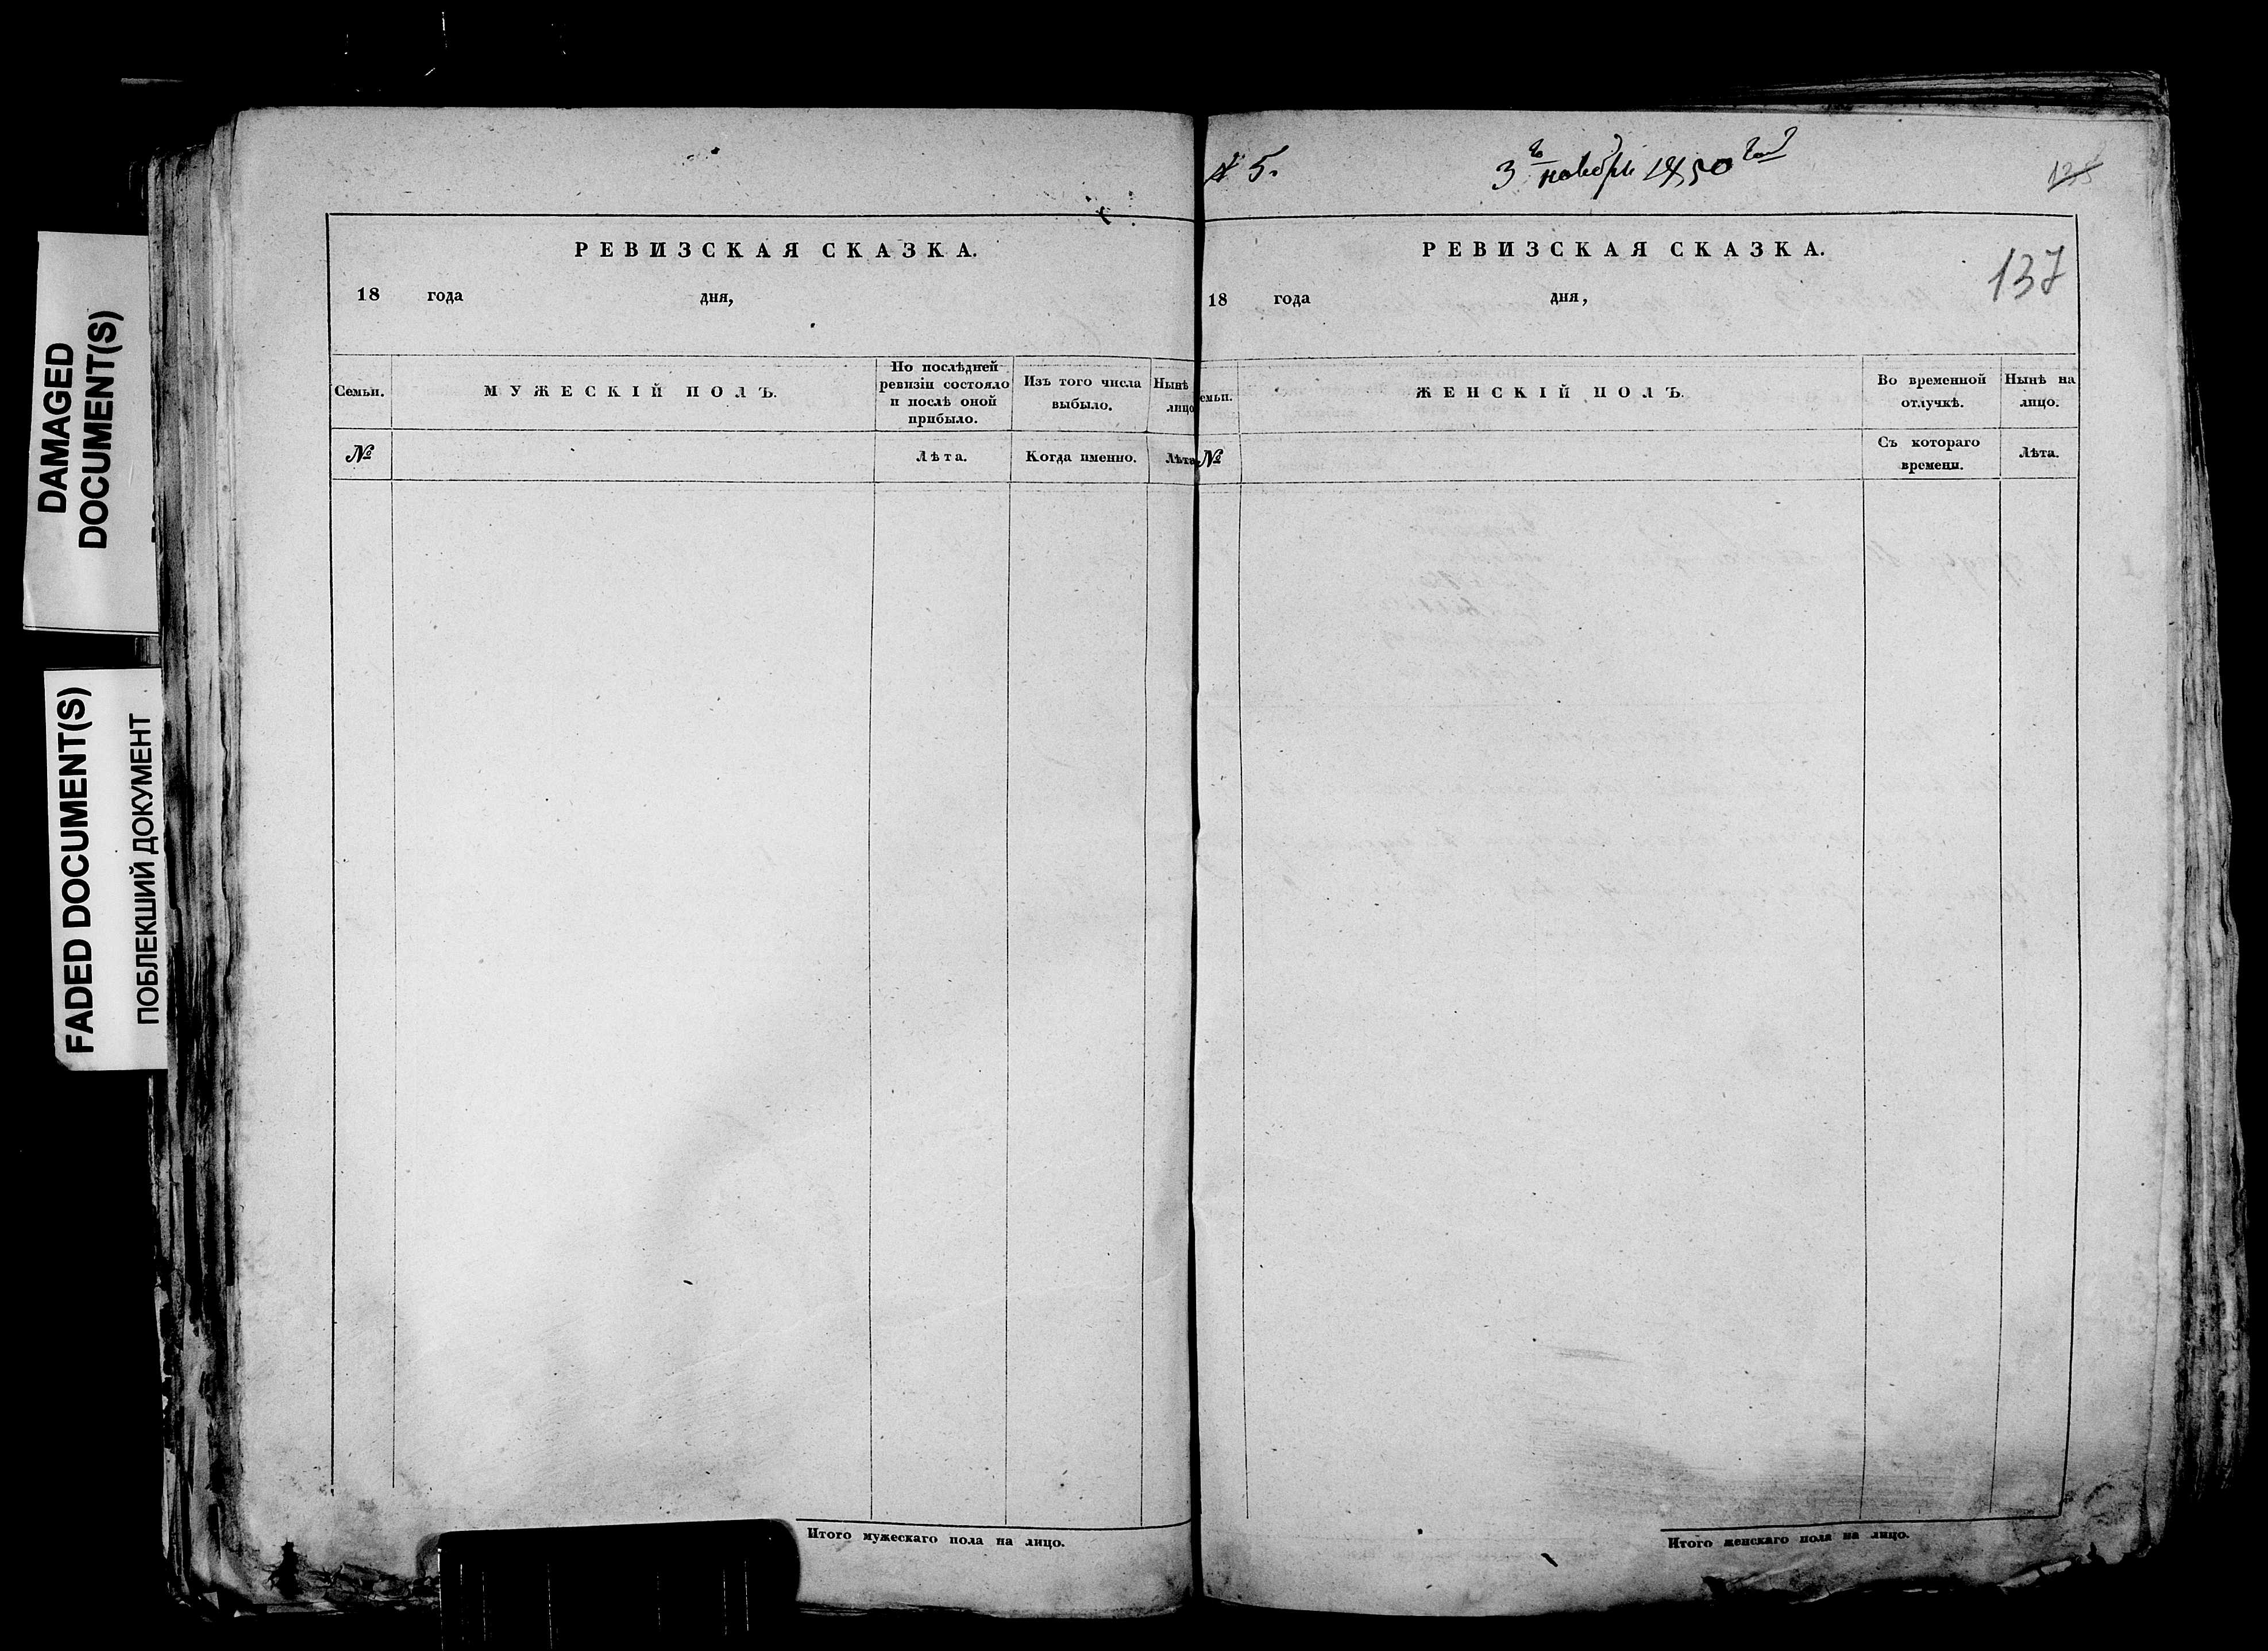 DAMAGED
DOCUMENT(S)
FADED DOCUMENT(S)
ПОБЛЕКШИЙ ДОКУМЕНТ
РЕВИЗСКАЯ СКАЗКА.
18 года дня,
Семьи.
МУЖЕСКІЙ ПОЛЪ.
По послѣдней
ревизіи состояло
и послѣ оной
прибыло.
Изъ того числа
выбыло.
Нынѣ
лицо
№
Лѣта.
Когда именно.
Лѣта.
Итого мужескаго пола на лицо.
№ 5.
3 ноября 1850
137
РЕВИЗСКАЯ СКАЗКА.
18 года дня,
емьи.
ЖЕНСКІЙ ПОЛЪ.
Во временной
отлучкѣ.
Нынѣ на
лицо.
№
Съ котораго
времени.
Лѣта.
Итого женскаго пола на лицо.